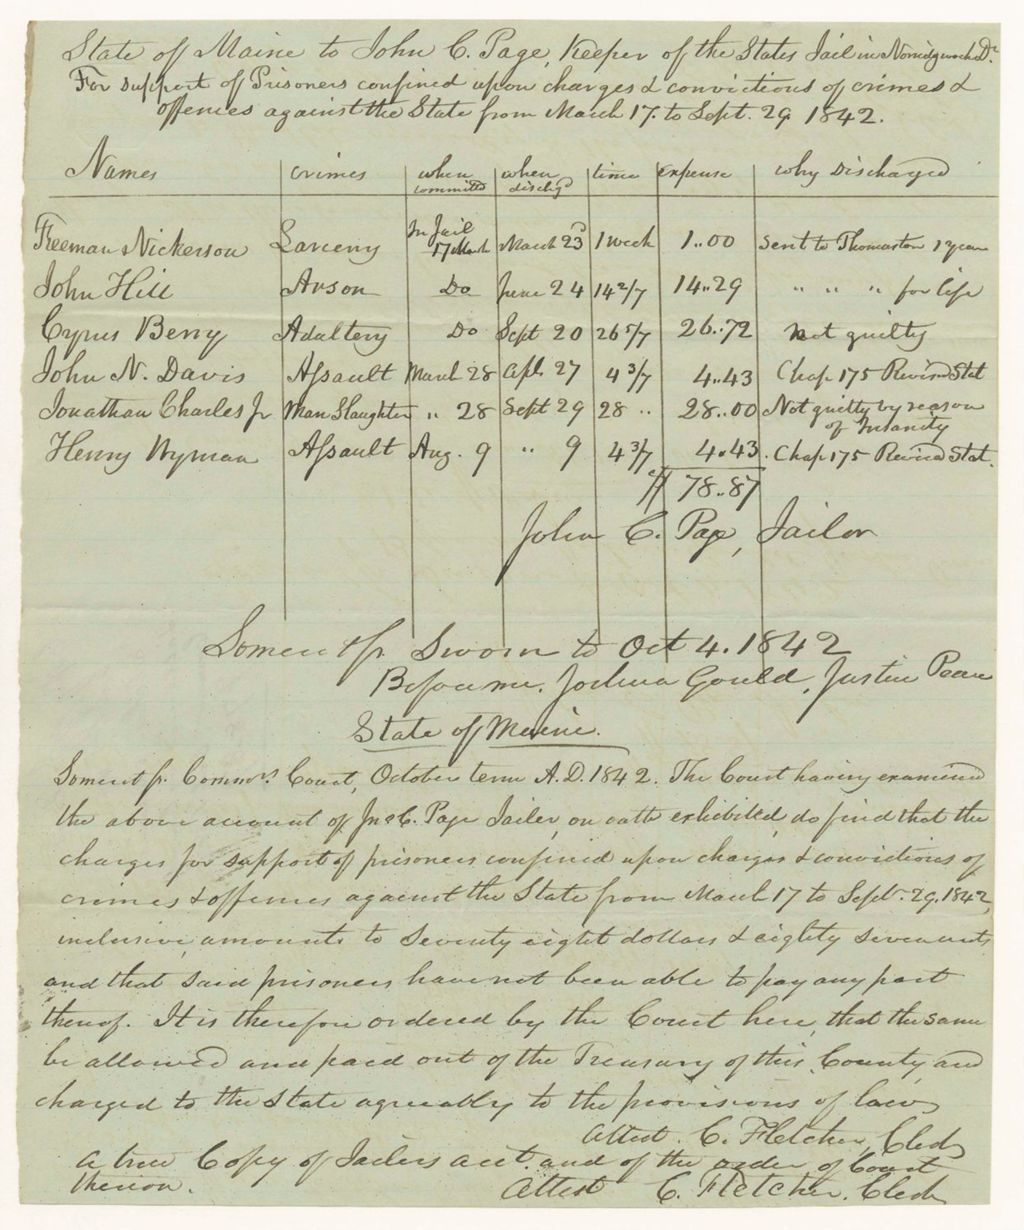 State of Maine to John C. Page, Keeper of the States Jail in Norridgewock Dr.
For support of Prisoners confined upon charges & convictions of crimes &
offences against the State from March 17. to Sept. 29. 1842.
Names crimes when committd when dischgd time expense why Discharged
Freeman Nickerson Larceny In Jail 17 March March 23d 1 week 1..00 sent to Thomaston 1 year
John Hill Arson Do June 24 14 2/7 14..29 " " " for life
Cyrus Berry Adultery Do Sept 20 26 5/7 26..72 not guilty
John N. Davis Assault March 28 Apl. 27 4 3/7 4..43 Chap 175 Revised Stat
Jonathan Charles Jr Man Slaughter " 28 Sept 29 28 " 28..00 Not guilty by reason of Insanity
Henry Wyman Assault Aug. 9 " 9 4 3/7 4.43. Chap 175 Revised Stat.
$ 78..87
John C. Page, Jailor
Somerset Ss. Sworn to Oct 4. 1842
Before me. Joshua Gould, Justice Peace
State of Maine.
Somerset Ss. Commrs. Court, October term A.D. 1842. The Court having examined
the above account of Jno C. Page Jailer, on oath exhibited, do find that the
charges for support of prisoners confined upon charges & convictions of
crimes & offences against the State from March 17 to Sept. 29, 1842,
inclusive, amounts to Seventy eight dollars & eighty seven cents
and that said prisoners have not been able to pay any part
thereof. It is therefore ordered by the Court here, that the same
be allowed and paid out of the Treasury of this County, and
charged to the State agreeably to the provisions of law
Attest. C. Fletcher, Clerk
A true Copy of Jailers acct. and of the order of Court
thereon.
Attest C. Fletcher. Clerk